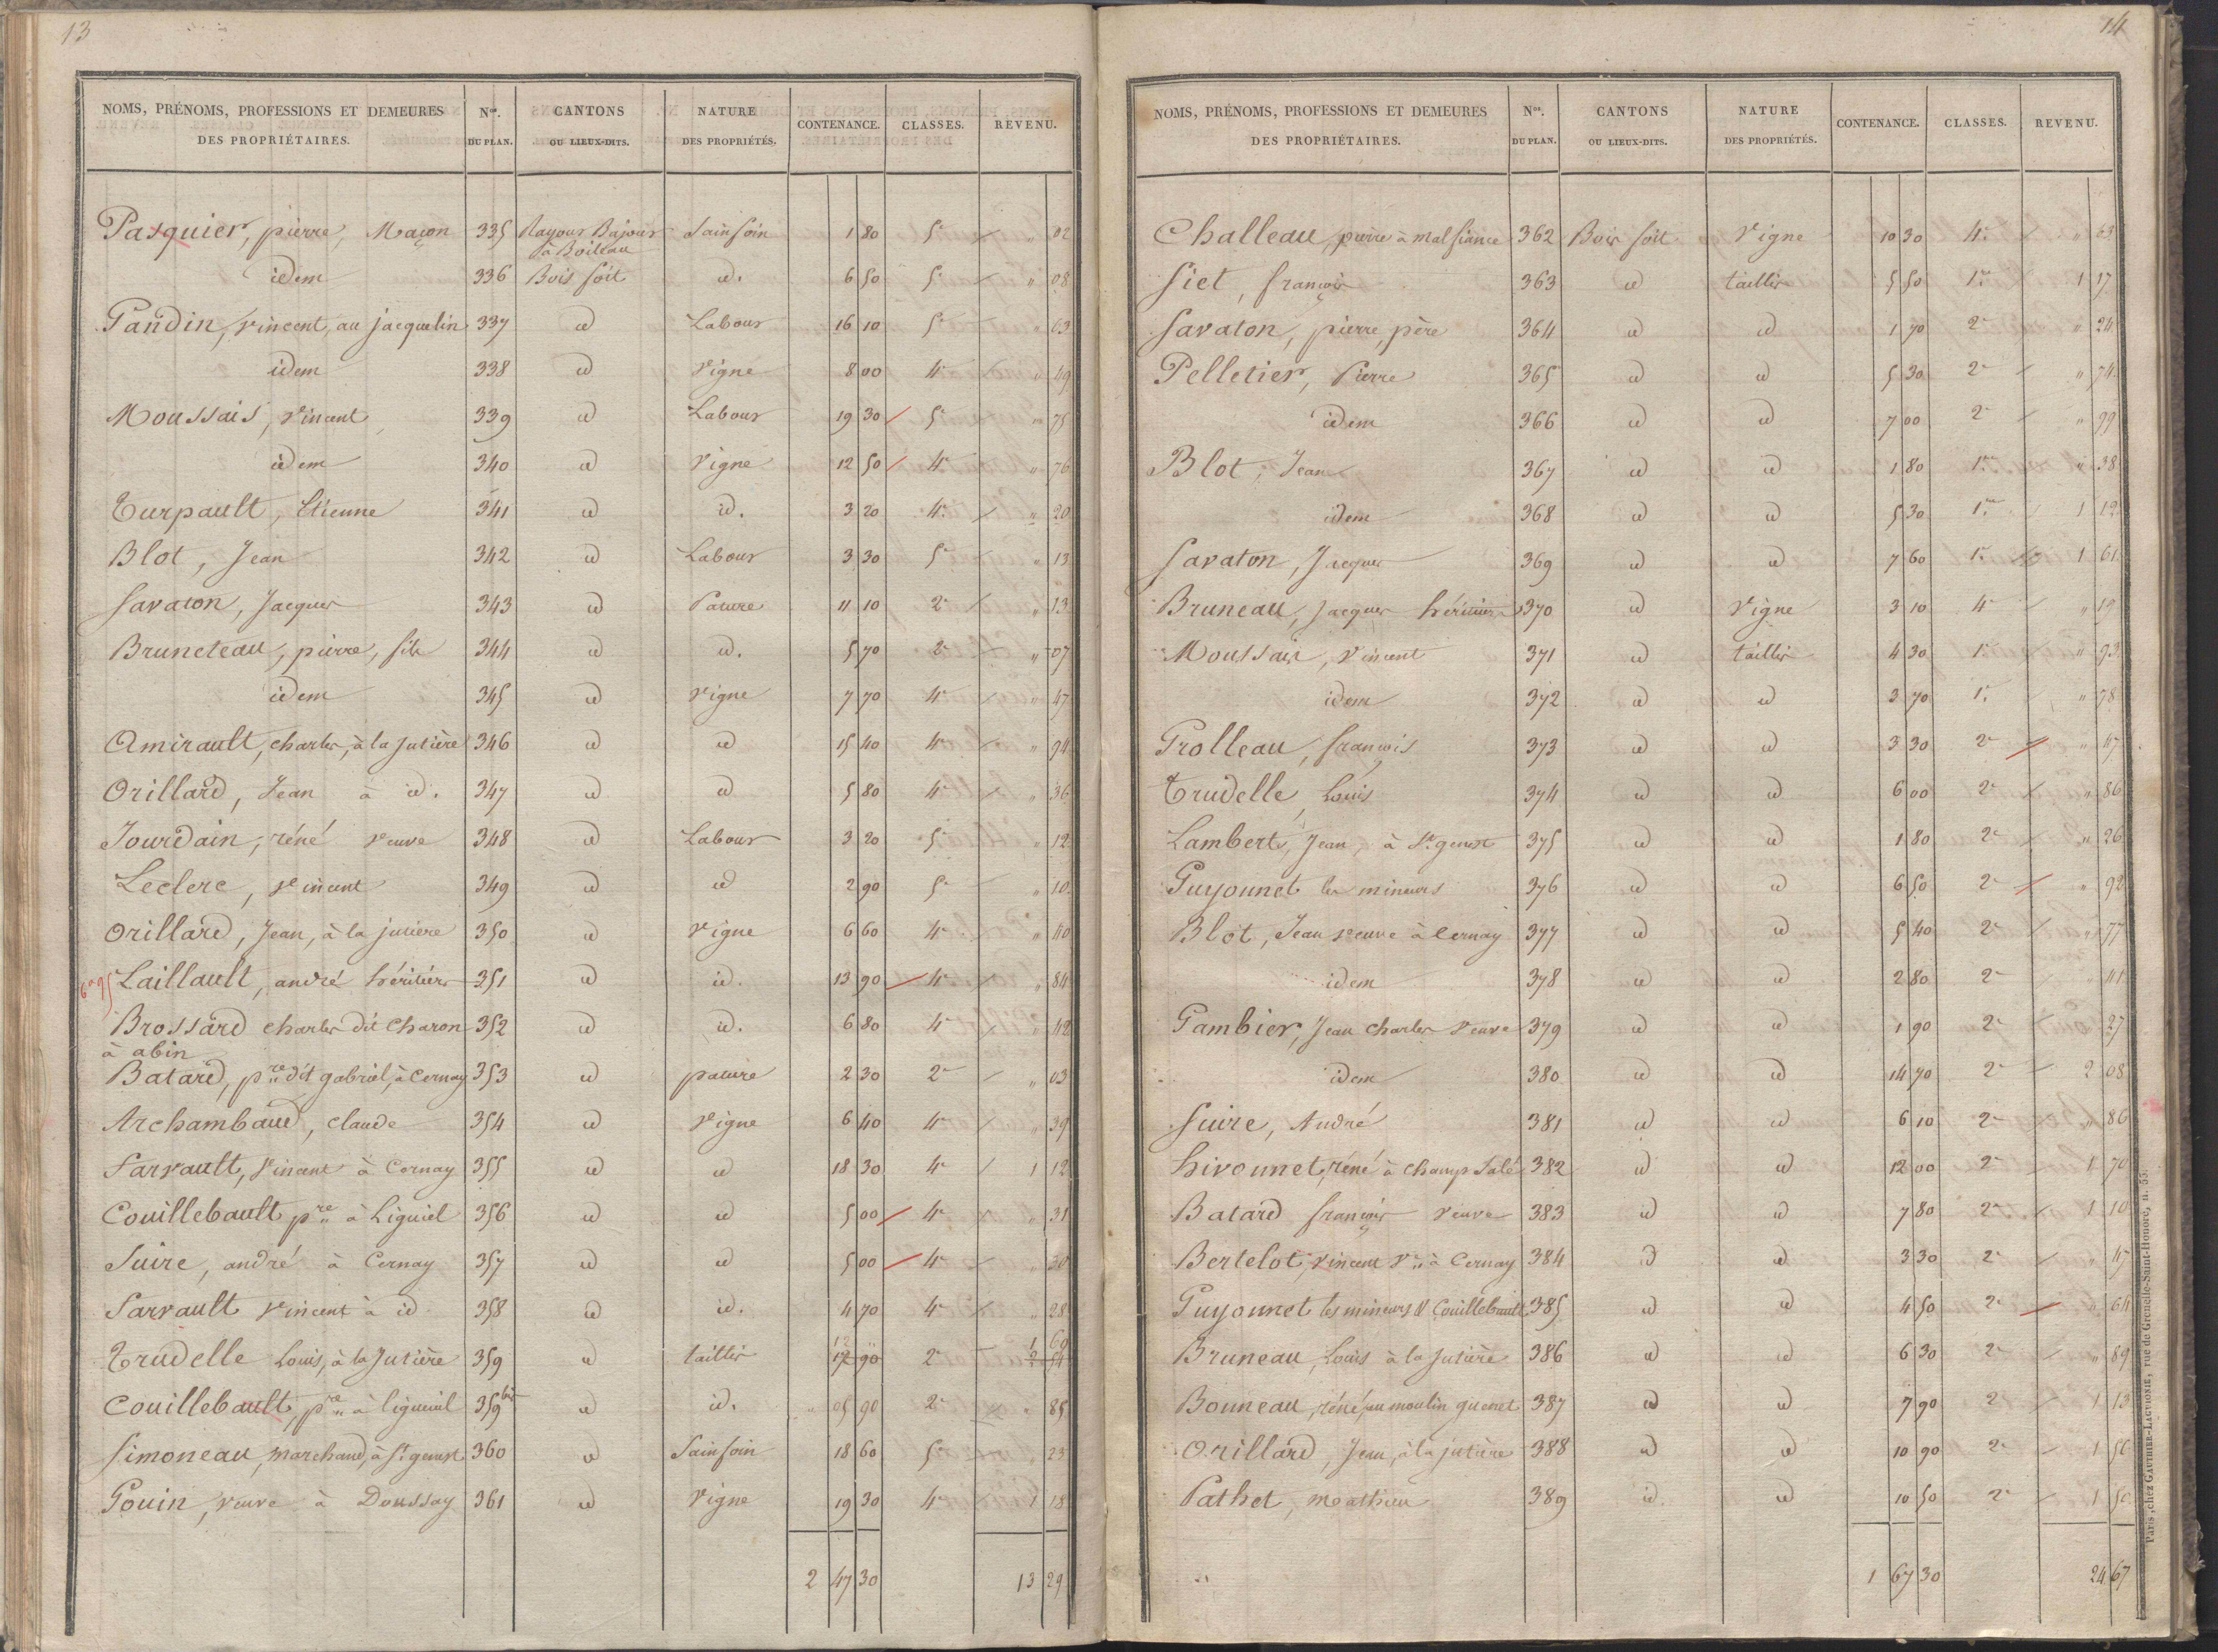 13
NOMS, PRÉNOMS, PROFESSIONS ET DEMEURES DES PROPRIÉTAIRES. Nos. DU PLAN. CANTONS OU LIEUX-DITS. NATURE DES PROPRIÉTÉS. CONTENANCE. CLASSES. REVENU.
Pasquier, pierre, Maçon 335 Rayour Bajour à Boileau Sainfoin 1 80 5e " 02
idem 336 Bois soit id. 6 50 5e " 08
Gandin, vincent, au jacquelin 337 id Labour 16 10 5e " 63
idem 338 id Vigne 8 00 4e " 49
Moussais, Vincent 339 id Labour 19 30 5e " 75
idem 340 id Vigne 12 50 4e " 76
Turpault, Etienne 341 id id. 3 20 4e " 20
Blot, Jean 342 id Labour 3 30 5e " 13
Savaton, Jacques 343 id Pature 11 10 2e " 13
Bruneteau, pierre, fils 344 id id. 5 70 2e " 07
idem 345 id vigne 7 70 4e " 47
Amirault, charles, à la Jutière 346 id id 15 40 4e " 94
Orillard, Jean à id. 347 id id 5 80 4e " 36
Jourdain, réné veuve 348 id Labour 3 20 5e " 12
Leclerc, vincent 349 id id 2 90 5e " 10
Orillard, Jean, à la jutiere 350 id vigne 6 60 4e " 40
Laillault, andré héritiers 351 id id. 13 90 4e " 84
Brossard charles dit Charon à abin 352 id id. 6 80 4e " 42
Batard, pre dit gabriel, à Cernay 353 id pature 2 30 2e " 03
Archambaud, claude 354 id vigne 6 40 4e " 39
Sarvault, Vincent à Cernay 355 id id 18 30 4e 1 12
Couillebault pre à Liguiel 356 id id 5 00 4e " 31
Suire, andré à Cernay 357 id id 5 00 4e " 30
Sarvault Vincent à id 358 id id. 4 70 4e " 28
Trudelle Louis, à la Jutière 359 id taillis 12 " 17 90 2e 1 69 2 54
Couillebault, pre à ligueuil 359 bis id id. " 05 90 2e " 85
Simoneau, marchand, à St genest 360 id Sainfoin 18 60 5e " 23
Gouin, veuve à Doussay 361 id Vigne 19 30 4e 1 18
2 47 30 13 29
14
NOMS, PRÉNOMS, PROFESSIONS ET DEMEURES DES PROPRIÉTAIRES. Nos. DU PLAN. CANTONS OU LIEUX-DITS. NATURE DES PROPRIÉTÉS. CONTENANCE. CLASSES. REVENU.
Challeau, pierre à malfiance 362 Bois soit Vigne 10 30 4e " 63
Siet, françois 363 id taillis 5 50 1re 1 17
Savaton, pierre, père 364 id id 1 70 2e " 24
Pelletier, Pierre 365 id id 5 30 2e " 74
idem 366 id id 7 00 2e " 99
Blot, Jean 367 id id 1 80 1re " 38
idem 368 id id 5 30 1re 1 12
Savaton, Jacques 369 id id 7 60 1re 1 61
Bruneau, Jacques héritiers 370 id Vigne 3 10 4e " 19
Moussais, Vincent 371 id taillis 4 30 1re " 93
idem 372 id id 3 70 1re " 78
Grolleau, françois 373 id id 3 30 2e " 47
Trudelle, Louis 374 id id 6 00 2e " 86
Lambert, Jean, à St genest 375 id id 1 80 2e " 26
Guyonnet les mineurs 376 id id 6 50 2e " 92
Blot, Jean veuve à Cernay 377 id id 5 40 2e " 77
idem 378 id id 2 80 2e " 41
Gambier, Jean charles veuve 379 id id 1 90 2e " 27
idem 380 id id 14 70 2e 2 08
Suire, André 381 id id 6 10 2e " 86
hivonnet, réné à champ Salé 382 id id 12 00 2e 1 70
Batard françois veuve 383 id id 7 80 2e 1 10
Bertelot, Vincent Ve à Cernay 384 id id 3 30 2e " 47
Guyonnet les mineurs & Couillebault 385 id id 4 50 2e " 64
Bruneau, Louis à la Jutière 386 id id 6 30 2e " 89
Bonneau, réné, au moulin guenet 387 id id 7 90 2e 1 13
Orillard, Jean, à la jutière 388 id id 10 90 2e 1 56
Pathet, mathieu 389 id. id 10 50 2e 1 50
1 67 30 24 67
Paris, chez GAUTHIER-LAGUIONIE, rue de Grenelle-Saint-Honoré, n. 55.